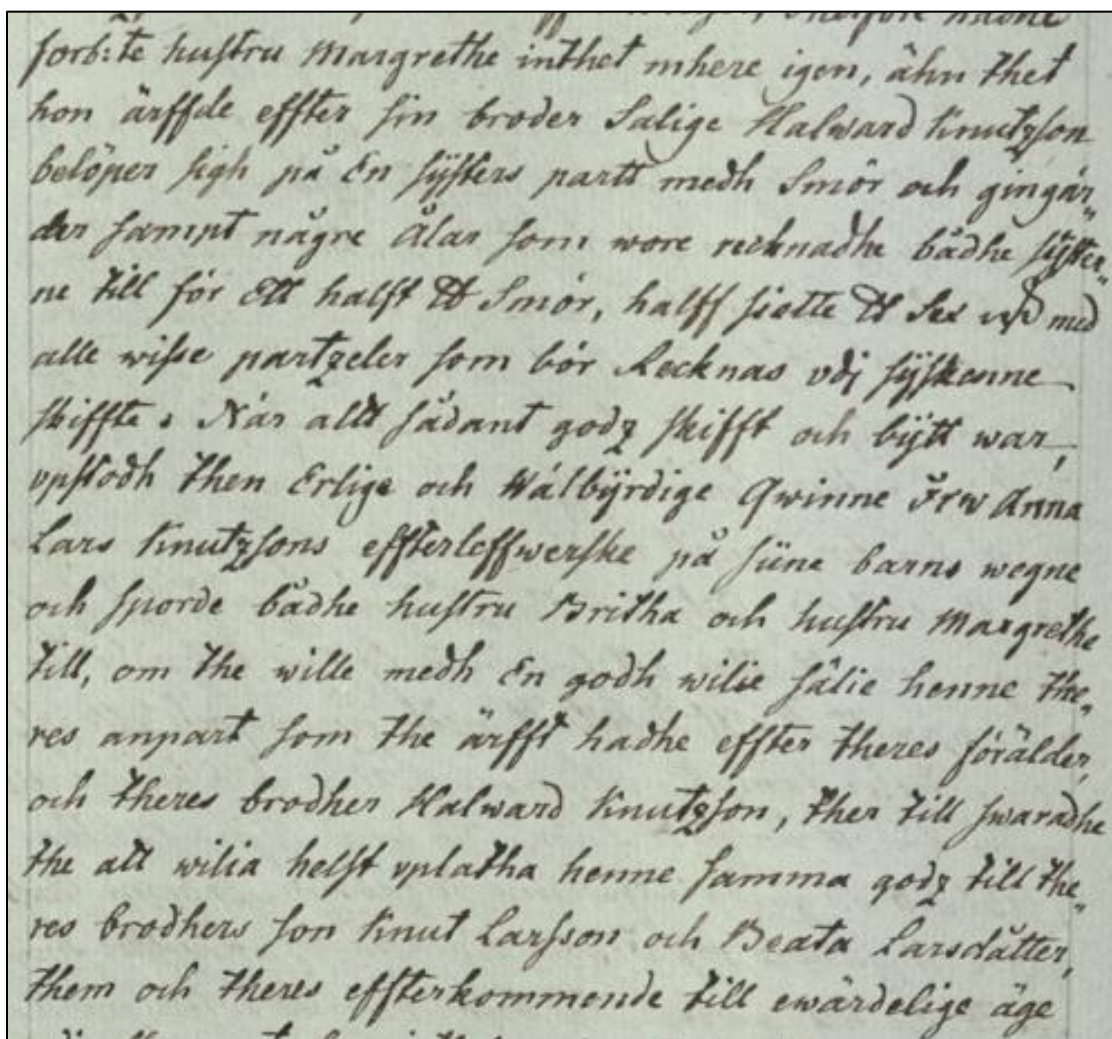 forb:te hustru Margrethe inthet mhere igen, ähn thet
hon ärffde effter sin broder Salige Halward Knutzson
belöper sigh på En sÿsters partt medh Smör och gingär„
der sampt någre Älar som wore recknadhe bådhe sÿster„
ne till för Ett halfft ℔ Smör, halff siette ℔ Sex med
alle wisse partzeler som bör Recknas vdj sÿskenne
skiffte. När allt sådant godz skifft och bÿtt war,
vpstodh then Erlige och Wälbÿrdige Qwinne Frw Anna
Lars Knutzsons effterleffwerske på siine barns wegne
och sporde bådhe hustru Britha och hustru Margrethe
till, om the wille medh En godh wilie sälie henne the„
res anpart som the ärfft hadhe effter theres förälder,
och theres brodher Halward Knutzson, ther till swaradhe
the att wilia helst vplatha henne samma godz till the„
res brodhers son Knut Larsson och Beata Larsdåtter,
them och theres effterkommende till ewärdelige äge